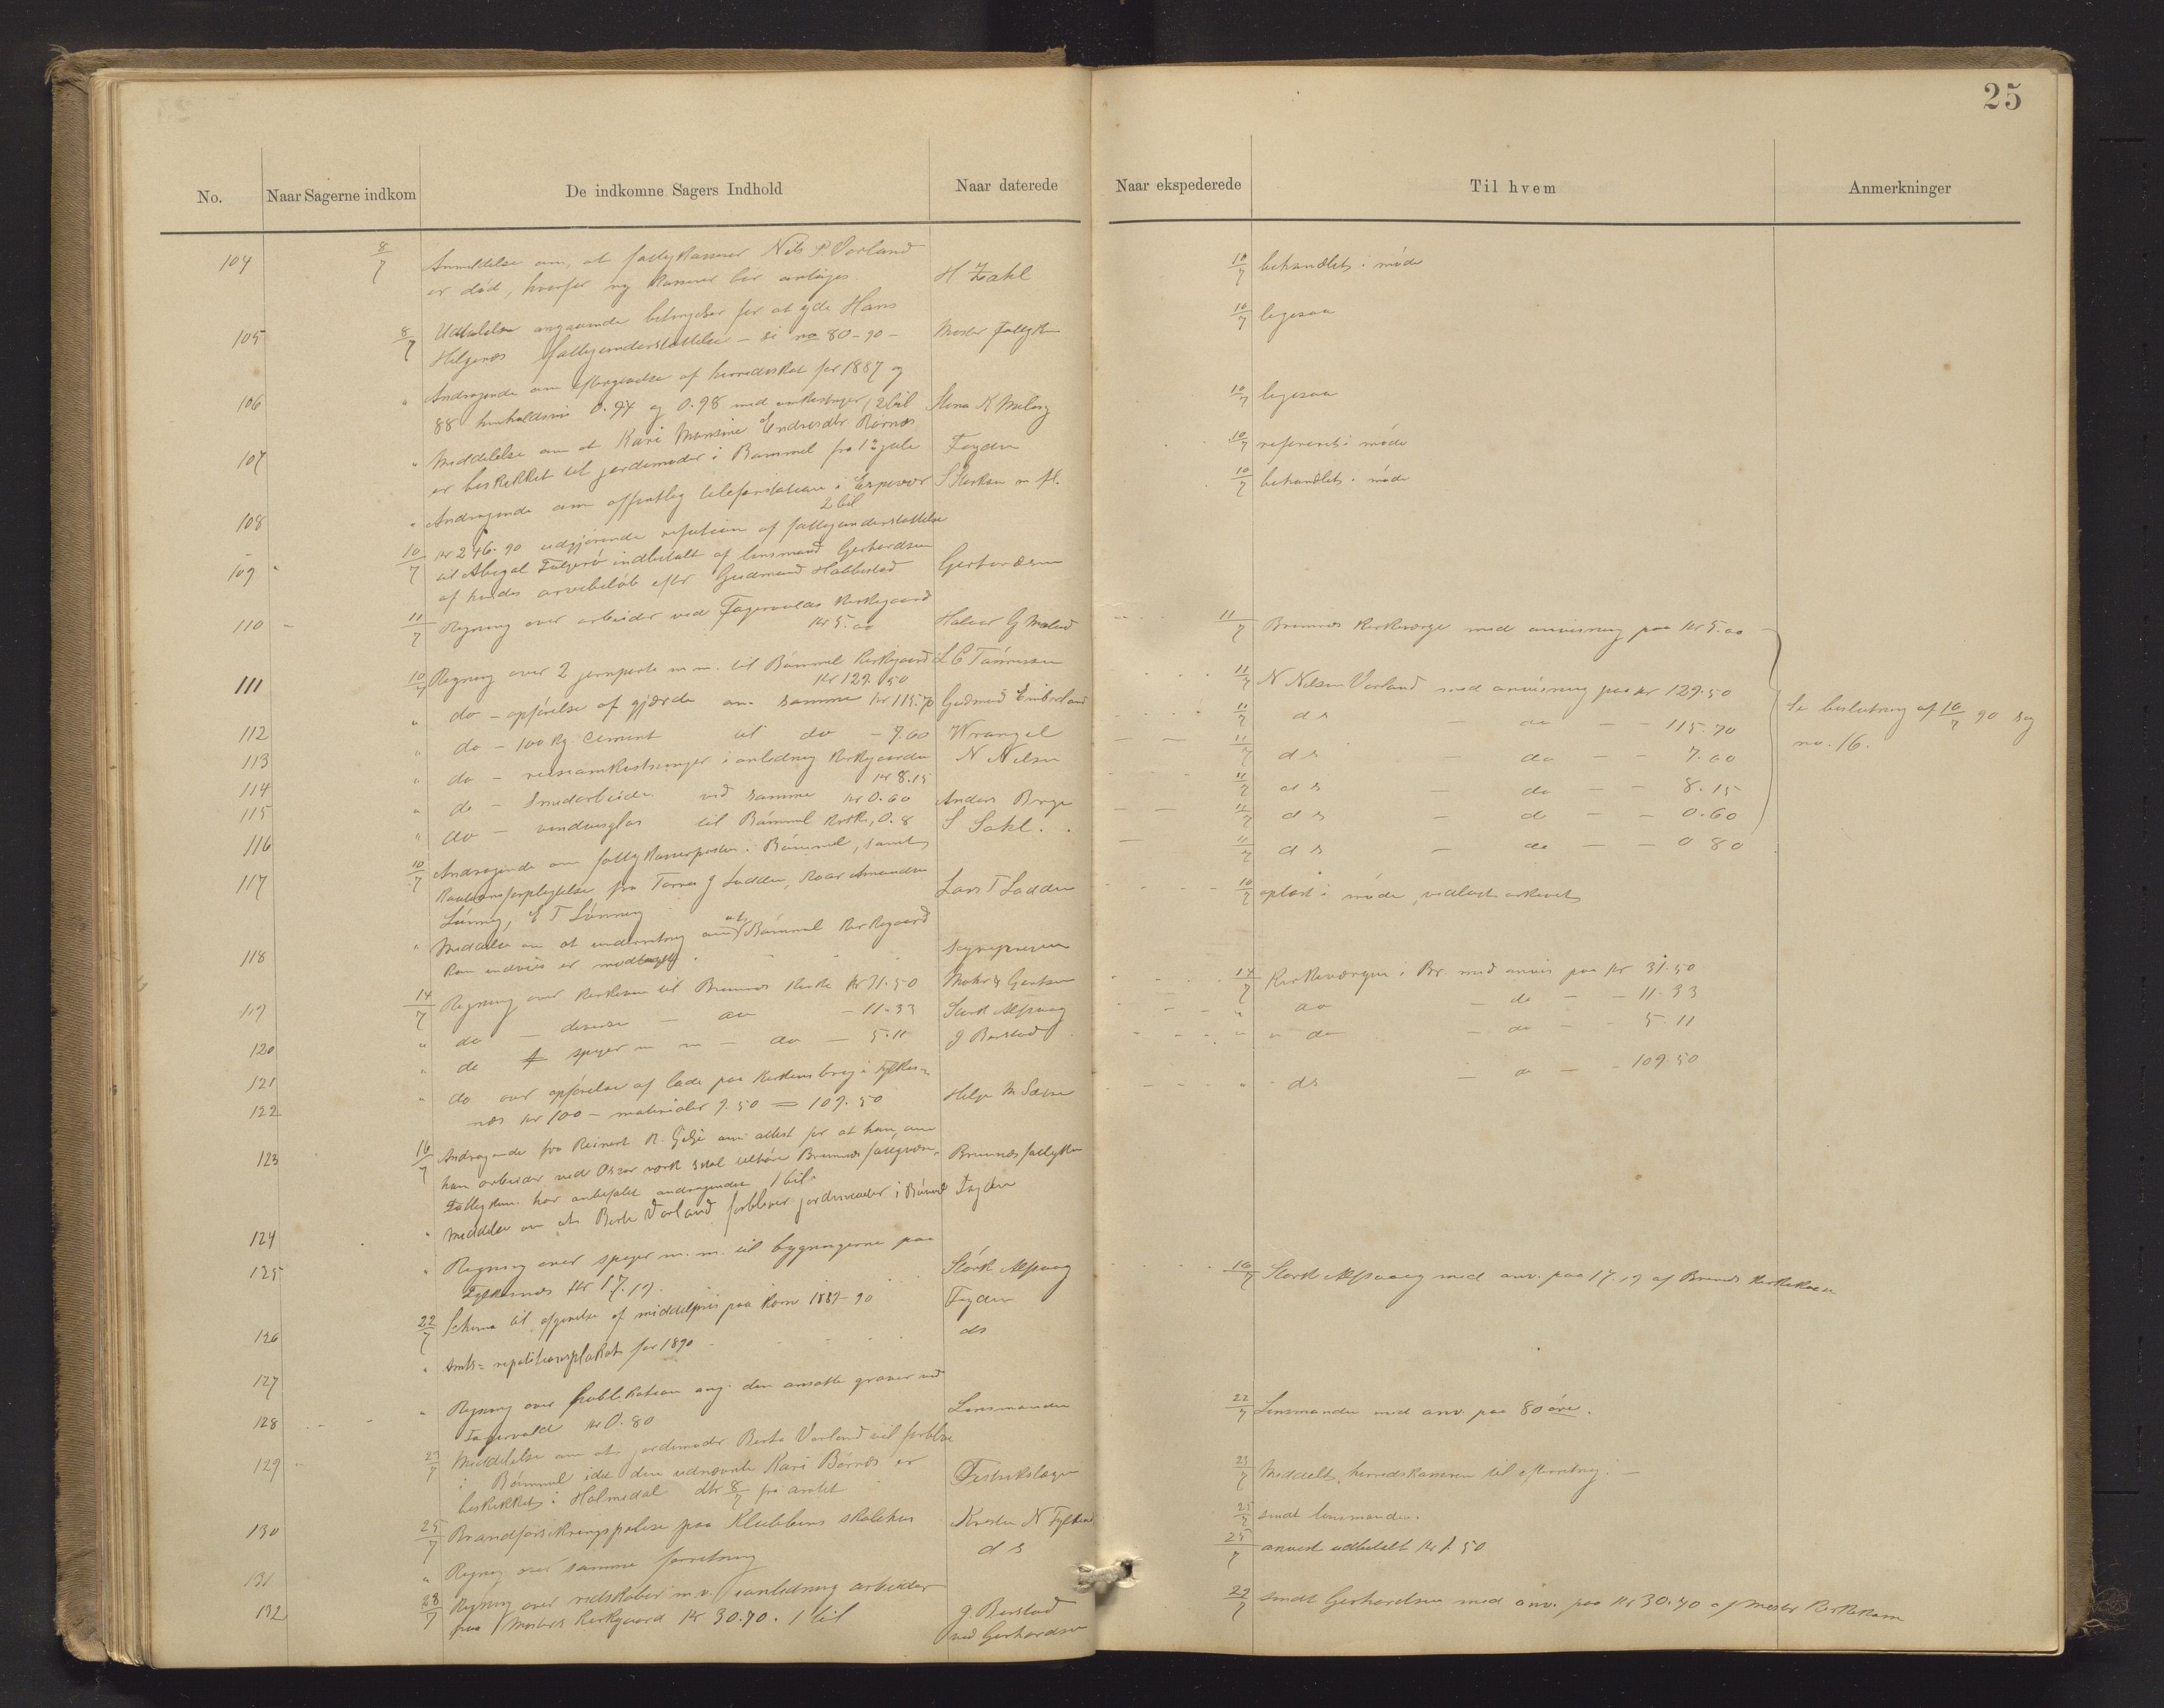 25
No.
Naar Sagerne indkom
De indkomne Sagers Indhold
Naar daterede
Naar ekspederede
Til hvem
Anmerkninger
104 8/7 Anmeldelse om, at fattigkasserer Nils P. Vorland
er død, hvorfor ny kasserer bør antages H Zahl 10/7 behandlet i møde
105 8/7 Udtalelse angaaende betingelser for at yde Hans
Helgenæs fattigunderstøttelse - se no 80-90 - Moster Fattigkm 10/7 ligesaa
106 " Andragende om eftergivelse af herredsskat for 1887 og
88 henholdsvis 0.94 og 0.98 med omkostninger, 2 bil Stona K Meling 10/7 ligesaa
107 " Meddelelse om at Kari Monsine Endresdtr Børnæs
er beskikket til jordemoder i Bømmel fra 1ste jule Fogden 10/7 refereret i møde
108 " Andragende om offentlig telefonstation i Espevær S Størksen m fl. 10/7 behandlet i møde
2 bil
109 " 10/7 Kr 246.90 udgjørende refution af fattigunderstøttelse
til Abigal indbetalt af lensmand Gerhardsen
af hendes arvebeløb efter Gudmund Habbestad Gerhardsen
110 11/7 Regning over arbeider ved Fagervolds Kirkegaard
Kr 5.00 Halvor G Meland 11/7 Bremnes Kirkeverge med anvisning paa Kr 5.00
111 10/7 Regning over 2 jernporte m.m. til Bømmel Kirkegaard L C Tønnesen
Kr 129.50 11/7 N Nilsen Vorland med anvisning paa Kr 129.50
112 " do - opførelse af gjærde om samme Kr 115.70 Gudmund Emberland 11/7 ds - do - - 115.70
Se beslutning af 10/7 90 sag
no. 16.
113 " do - 100 kg. Cement til do - 7.60 Wrangel 11/7 ds - do - - 7.60
114 " do - reiseomkostninger i anledning Kirkegaarden N Nilsen
Kr 8.15 11/7 ds - do - - 8.15
115 " do - Smedarbeide ved samme Kr 0.60 Anders Berge 11/7 ds - do - - 0.60
116 " do - vindusglas til Bømmel Kirke, 0.8 S Sahl. 11/7 ds - do - - 0 80
117 10/7 Andragende om fattigkasserposten i Bømmel, samt
Kautionsforpligtelse fra Tørres J Ladden, Roar Amundsen
Lønning, E T Lønning Lars T Ladden 10/7 oplæst i møde, vedlagt arkivet
118 " Meddelelse om at underretning om at Bømmel Kirkegaard
kan indvies er modtaget. Sognepresten
119 14/7 Regning over Kirkeovn til Bremnes Kirke Kr 31.50 Mohr & Gertsen 14/7 Kirkevergen i Br. med anvis paa Kr 31.50
120 " do - diverse - do - 11.33 Størk Alfsvaag " do - do - - 11.33
121 " do spiger m m - do - 5.11 J Berstad " do - do - - 5.11
122 " do over opførelse af lade paa Kirkens brug i Fylkes-
næs Kr 100 - materialer 9.50 = 109.50 Helge M. Sæve " ds - do - - 109.50
123 16/7 Andragende fra Reinert R. Gilje om attest for at han, om
han arbeider ved Oscar værk skal tilhøre Bremnes fattigvæsen.
Fattigkm. har anbefalet andragendet 1 bil Bremnes fattigkm
124 " Meddelelse om at Berte Vorland forbliver jordemoder i Bømmel Fogden
125 " Regning over spiger m. m. til bygningerne paa
Fylkesnæs Kr 17.19. Størk Alfsvaag 16/7 Størk Alfsvaag med anv. paa 17.19 af Bremnes Kirkekasse
126 22/7 Schema til opgivelse af middelpris paa korn 1889-90 Fogden
127 " Amts-repartitionsplakat for 1890 ds
128 " Regning over Publikation ang. den ansatte graver ved
Fagervold Kr 0.80 Lensmanden 22/7 Lensmanden med anv. paa 80 øre.
129 23/7 Meddelelse om at jordemoder Berta Vorland vil forblive
i Bømmel idet den udnævnte Kari Børnæs er
beskikket i Holmedal dtr 8/7 fra amtet Distriktslægen 23/7 Meddelt herredskassereren til efterretning. -
130 25/7 Brandforsikringspolise paa Klubbens skolehus Kristen N Fylkesnæs 25/7 sendt lensmanden.
131 " Regning over samme forretning ds 25/7 anvist udbetalt Kr 1.50
132 28/7 Regning over redskaber m.v. i anledning arbeider
paa Mosters Kirkegaard Kr 30.70. 1 bil J Berstad
ved Gerhardsen 29/7 sendt Gerhardsen med anv. paa Kr 30.70 af Moster Kirkekasse